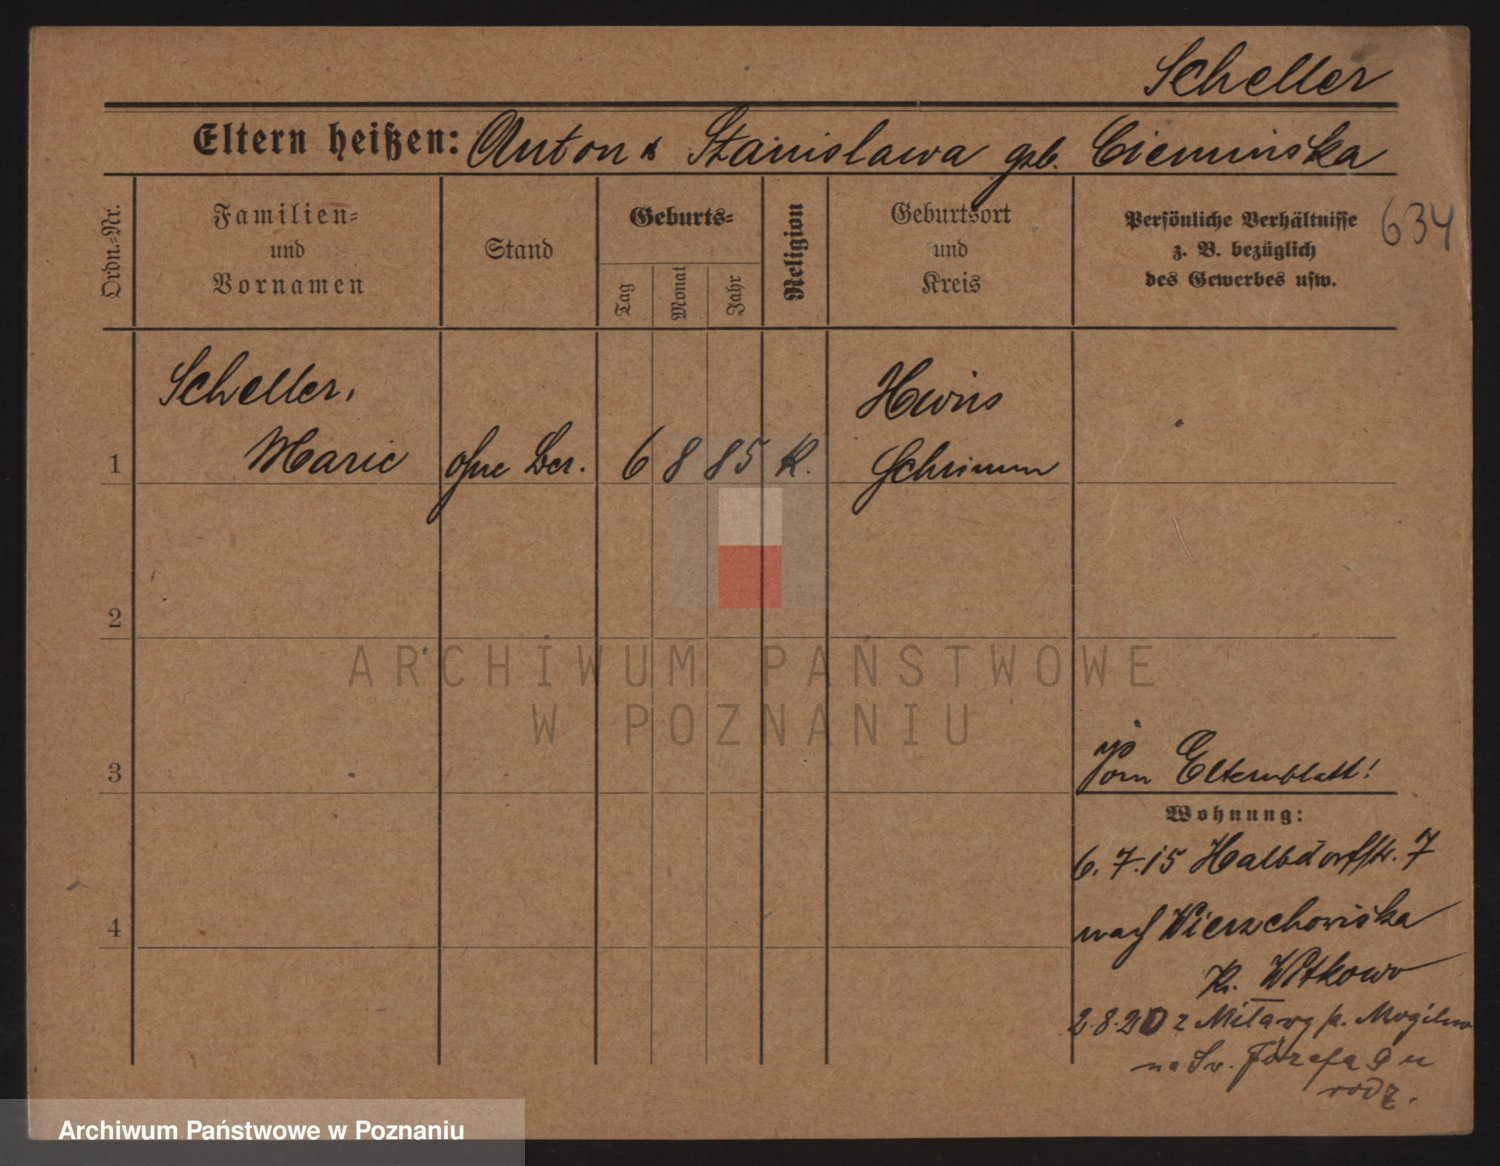 Scheller
Eltern heißen: Anton & Stanislawa geb. Cieminska
634
Ordn.-Nr.
Familien-
und
Vornamen
Stand
Geburts-
Tag
Monat
Jahr
Religion
Geburtsort
und
Kreis
Persönliche Verhältnisse
z. B. bezüglich
des Gewerbes usw.
Scheller,
1 Marie ohne Ber. 6 8 85 K.
Schrimm
2
ARCHIWUM PAŃSTWOWE
W POZNANIU
3
vom Elternblatt!
Wohnung:
6.7.15 Halbdorfstr. 7
4
nach Wierzchowiska
Kr. Witkowo
2.8.20 z p. Mogilno
na Św. Józefa 9 u
rodz.
Archiwum Państwowe w Poznaniu